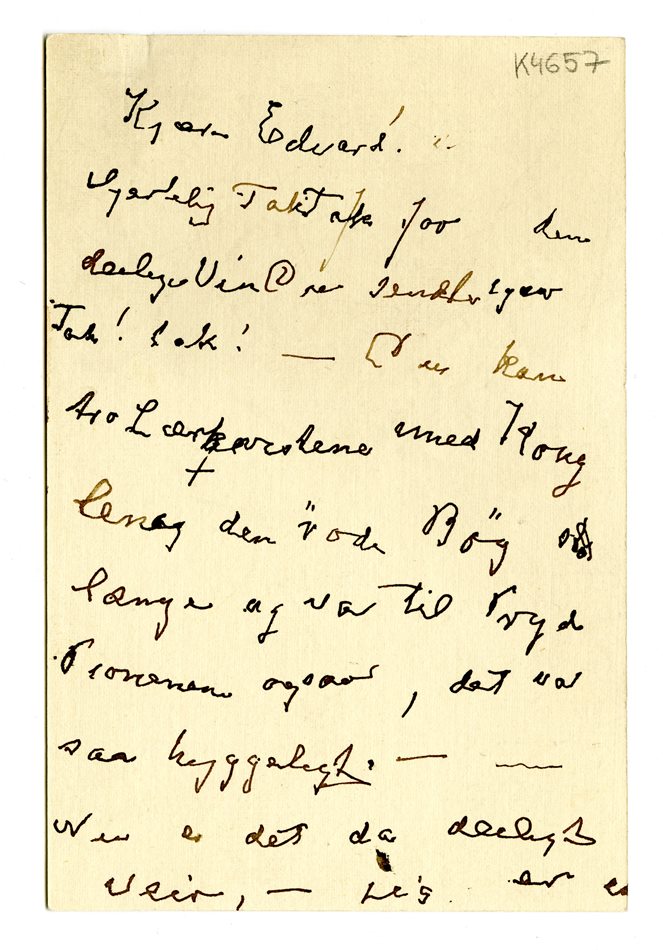 K4657
Kjære Edvard!
Hjertelig Tak Tak for den
deilige Vin Du sendte igaar
Tak! tak! — Du kan
tro Lærkekvistene med Kong
lene og den röde Bög
længe og var til Pryd
Pionenene ogsaa, det var
saa hyggeligt. —
Nu er det da deiligt
Veir, — jeg er